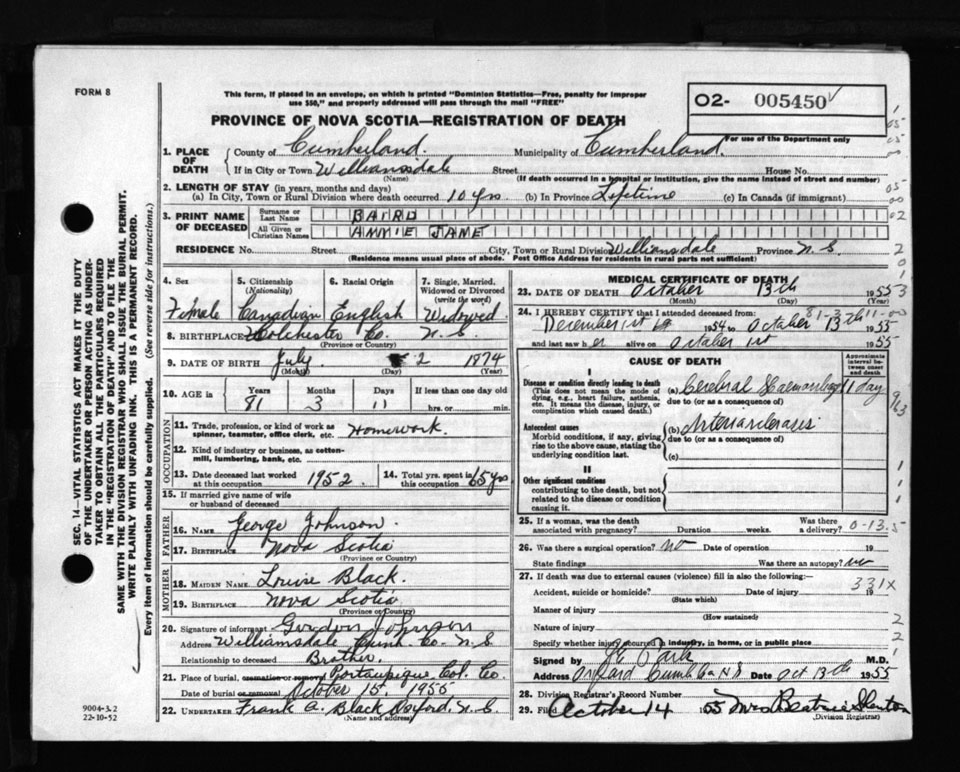 FORM 8
This form, if placed in an envelope, on which is printed "Dominion Statistics—Free, penalty for improper
use $50," and properly addressed will pass through the mail "FREE"
O2- 005450
PROVINCE OF NOVA SCOTIA—REGISTRATION OF DEATH
For use of the Department only
1. PLACE OF DEATH
County of Cumberland. Municipality of Cumberland.
If in City or Town Williamsdale Street House No.
(Name) (If death occurred in a hospital or institution, give the name instead of street and number)
2. LENGTH OF STAY (in years, months and days)
(a) In City, Town or Rural Division where death occurred 10 yrs. (b) In Province Lifetime (c) In Canada (if immigrant)
3. PRINT NAME OF DECEASED
Surname or Last Name BAIRD
All Given or Christian Names ANNIE JANE
RESIDENCE No. Street City, Town or Rural Division Williamsdale Province N.S.
(Residence means usual place of abode. Post Office Address for residents in rural parts not sufficient)
4. Sex 5. Citizenship (Nationality) 6. Racial Origin 7. Single, Married, Widowed or Divorced (write the word)
Female Canadian English Widowed
8. BIRTHPLACE Colchester Co. N.S.
(Province or Country)
9. DATE OF BIRTH July 2 1874
(Month) (Day) (Year)
10. AGE in Years Months Days If less than one day old
81 3 11 hrs. or min.
OCCUPATION
11. Trade, profession, or kind of work as spinner, teamster, office clerk, etc. Homework.
12. Kind of industry or business, as cotton-mill, lumbering, bank, etc.
13. Date deceased last worked at this occupation 1952. 14. Total yrs. spent in this occupation 65 yrs
15. If married give name of wife or husband of deceased
FATHER
16. NAME George Johnson.
17. BIRTHPLACE Nova Scotia
(Province or Country)
MOTHER
18. MAIDEN NAME Louise Black.
19. BIRTHPLACE Nova Scotia
(Province or Country)
20. Signature of informant Gordon Johnson
Address Williamsdale Cumb. Co. N.S.
Relationship to deceased Brother.
21. Place of burial, cremation or removal Portaupique Col. Co.
Date of burial or removal October 15, 1955
22. UNDERTAKER Frank A. Black Oxford, N.S.
(Name and address)
MEDICAL CERTIFICATE OF DEATH
23. DATE OF DEATH October 13th 1955
(Month) (Day) (Year)
24. I HEREBY CERTIFY that I attended deceased from:
81-3-11-00
December 1st 1954 to October 13th 1955
and last saw her alive on October 1st 1955
CAUSE OF DEATH
Approximate interval between onset and death
I
Disease or condition directly leading to death
(This does not mean the mode of dying, e.g., heart failure, asthenia, etc. It means the disease, injury, or complication which caused death.)
(a) Cerebral Haemorrhage 1 day
due to (or as a consequence of)
Antecedent causes
Morbid conditions, if any, giving rise to the above cause, stating the underlying condition last.
(b) Arteriosclerosis
due to (or as a consequence of)
(c)
II
Other significant conditions
contributing to the death, but not related to the disease or condition causing it.
25. If a woman, was the death associated with pregnancy? Duration weeks. Was there a delivery?
0-13.5
26. Was there a surgical operation? no Date of operation 19
State findings Was there an autopsy? no
27. If death was due to external causes (violence) fill in also the following:—
331X
Accident, suicide or homicide? Date of injury 19
(State which)
Manner of injury
(How sustained)
Nature of injury
Specify whether injury occurred in industry, in home, or in public place
Signed by M.D.
Address Oxford Cumb Co N S Date Oct 13th 1955
28. Division Registrar's Record Number
29. Filed October 14 1955 Mrs Beatrice
(Division Registrar)
SEC. 14—VITAL STATISTICS ACT MAKES IT THE DUTY
OF THE UNDERTAKER OR PERSON ACTING AS UNDER-
TAKER TO OBTAIN ALL THE PARTICULARS REQUIRED
IN THE "REGISTRATION OF DEATH" AND TO FILE THE
SAME WITH THE DIVISION REGISTRAR WHO SHALL ISSUE THE BURIAL PERMIT.
WRITE PLAINLY WITH UNFADING INK. THIS IS A PERMANENT RECORD.
Every item of information should be carefully supplied. (See reverse side for instructions.)
9004-3.2
22-10-52